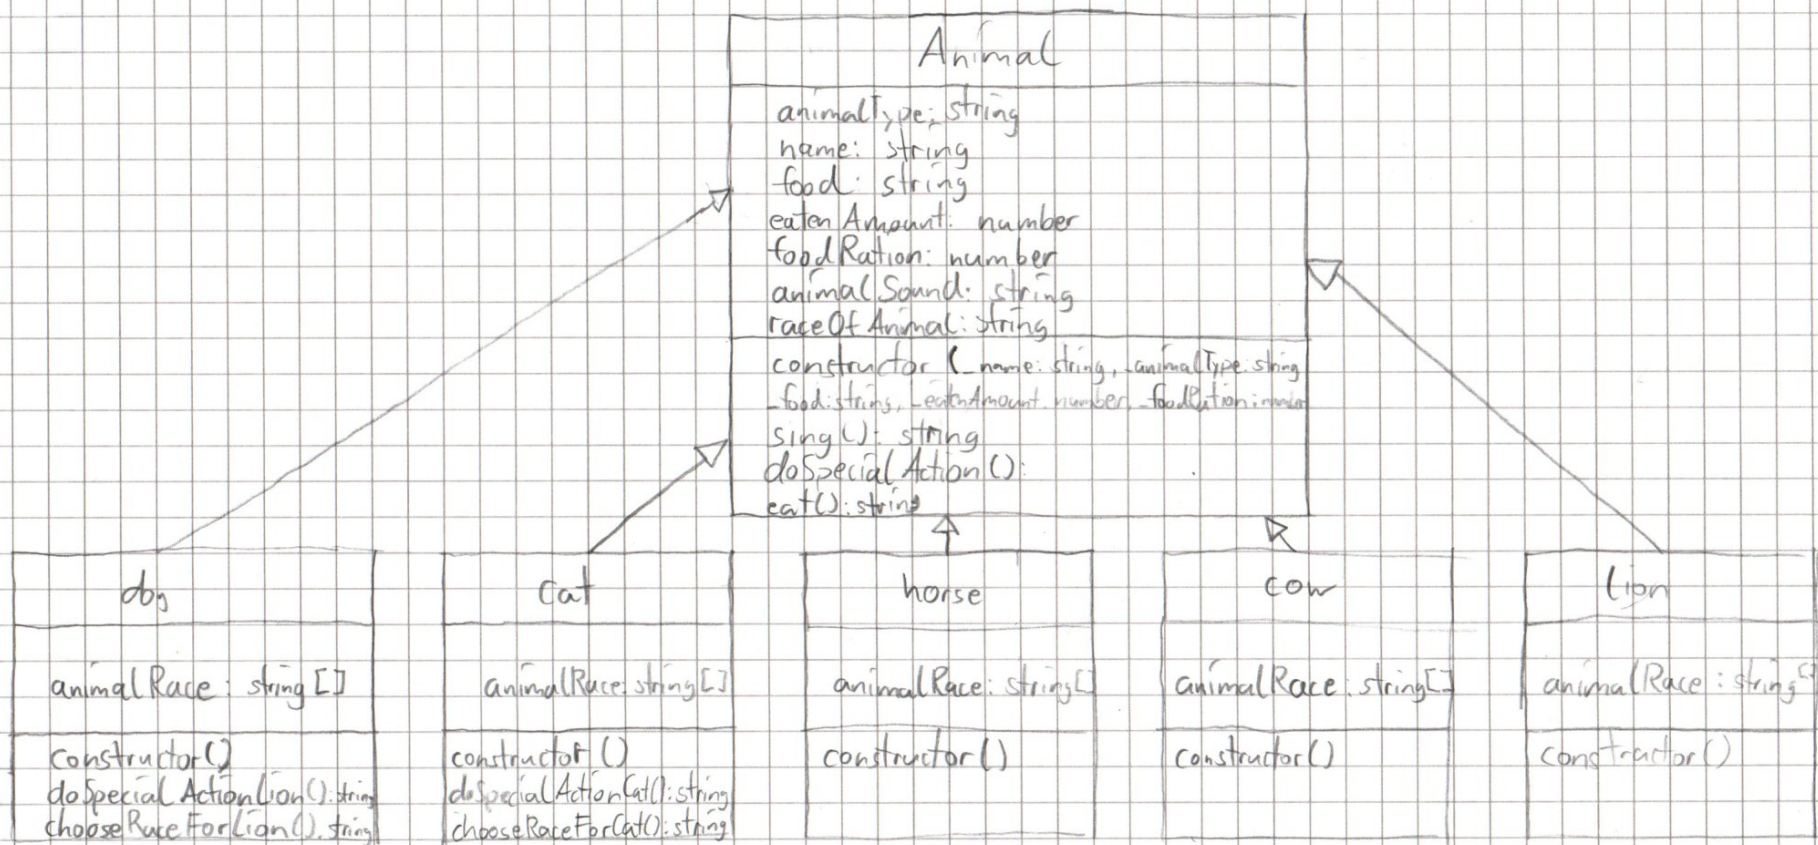 Animal
animalType: string
name: string
food: string
eatenAmount: number
foodRation: number
animalSound: string
raceOfAnimal: string
constructor (_name: string, _animalType: string
_food: string, _eatenAmount: number, _foodRation: number
sing(): string
doSpecialAction():
eat(): string
dog
animalRace: string[]
constructor()
doSpecialActionLion(): string
chooseRaceForLion(): string
cat
animalRace: string[]
constructor()
doSpecialActionCat(): string
chooseRaceForCat(): string
horse
animalRace: string[]
constructor()
cow
animalRace: string[]
constructor()
lion
animalRace: string[]
constructor()